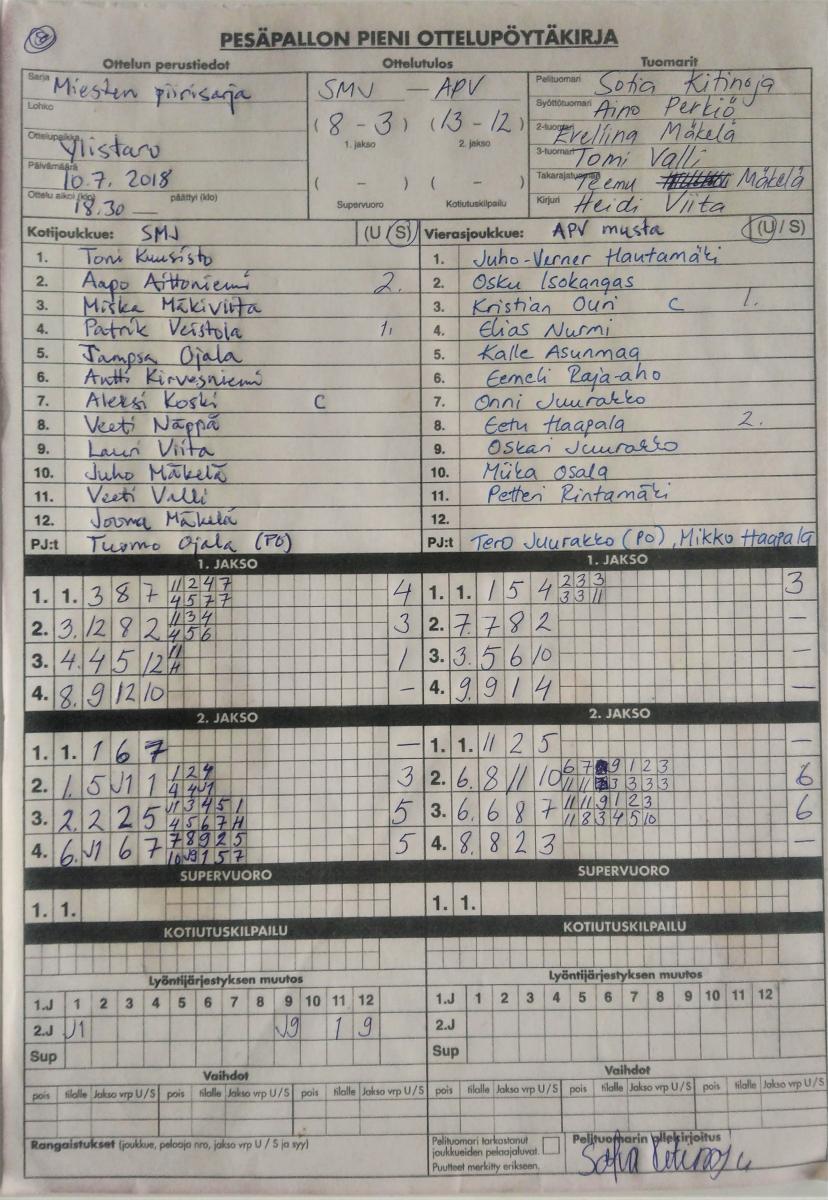 8
PESÄPALLON PIENI OTTELUPÖYTÄKIRJA
Ottelun perustiedot Ottelutulos Tuomarit
Sarja Miesten piirisarja SMJ — APV Pelituomari Sofia Kitinoja
Lohko (8 - 3) (13 - 12) Syöttötuomari Aino Perkiö
1. jakso 2. jakso 2-tuomari Eveliina Mäkelä
Ottelupaikka Ylistaro 3-tuomari Tomi Valli
Päivämäärä 10.7. 2018 ( - ) ( - ) Takarajatuomari Teemu Mäkelä
Ottelu alkoi (klo) 18.30 — päättyi (klo) Supervuoro Kotiutuskilpailu Kirjuri Heidi Viita
Kotijoukkue: SMJ (U / S) Vierasjoukkue: APV musta (U / S)
1. Toni Kuusisto 1. Juho-Verner Hautamäki
2. Aapo Aittoniemi 2. 2. Osku Isokangas
3. Miska Mäkiviita 3. Kristian Ouri C 1.
4. Patrik Veistola 1. 4. Elias Nurmi
5. Jampsa Ojala 5. Kalle Asunmaa
6. Antti Kirvesniemi 6. Eemeli Raja-aho
7. Aleksi Koski C 7. Onni Juurakko
8. Veeti Näppä 8. Eetu Haapala 2.
9. Lauri Viita 9. Oskari Juurakko
10. Juho Mäkelä 10. Miika Osala
11. Veeti Valli 11. Petteri Rintamäki
12. Joona Mäkelä 12.
PJ:t Tuomo Ojala (PO) PJ:t Tero Juurakko (PO), Mikko Haapala
1. JAKSO 1. JAKSO
11 2 4 7 2 3 3
1. 1. 3 8 7 4 5 7 7 4 1. 1. 1 5 4 3 3 11 3
11 3 4
2. 3. 12 8 2 4 5 6 3 2. 7. 7 8 2 —
11
3. 4. 4 5 12 H 1 3. 3. 5 6 10 —
4. 8. 9 12 10 — 4. 9. 9 1 4 —
2. JAKSO 2. JAKSO
1. 1. 1 6 7 — 1. 1. 11 2 5 —
1 2 4 6 7 9 1 2 3
2. 1. 5 J1 1 4 4 J1 3 2. 6. 8 11 10 11 11 3 3 3 3 6
J1 3 4 5 1 11 11 9 1 2 3
3. 2. 2 2 5 4 5 6 7 H 5 3. 6. 6 8 7 11 8 3 4 5 10 6
7 8 9 2 5
4. 6. J1 6 7 10 J9 1 5 7 5 4. 8. 8 2 3 —
SUPERVUORO SUPERVUORO
1. 1. 1. 1.
KOTIUTUSKILPAILU KOTIUTUSKILPAILU
Lyöntijärjestyksen muutos Lyöntijärjestyksen muutos
1.J 1 2 3 4 5 6 7 8 9 10 11 12 1.J 1 2 3 4 5 6 7 8 9 10 11 12
2.J J1 J9 1 9 2.J
Sup Sup
Vaihdot Vaihdot
pois tilalle Jakso vrp U / S pois tilalle Jakso vrp U / S pois tilalle Jakso vrp U / S pois tilalle Jakso vrp U / S pois tilalle Jakso vrp U / S pois tilalle Jakso vrp U / S
Rangaistukset (joukkue, pelaaja nro, jakso vrp U / S ja syy) Pelituomari tarkastanut Pelituomarin allekirjoitus
joukkueiden pelaajaluvat. Sofia Kitinoja
Puutteet merkitty erikseen.